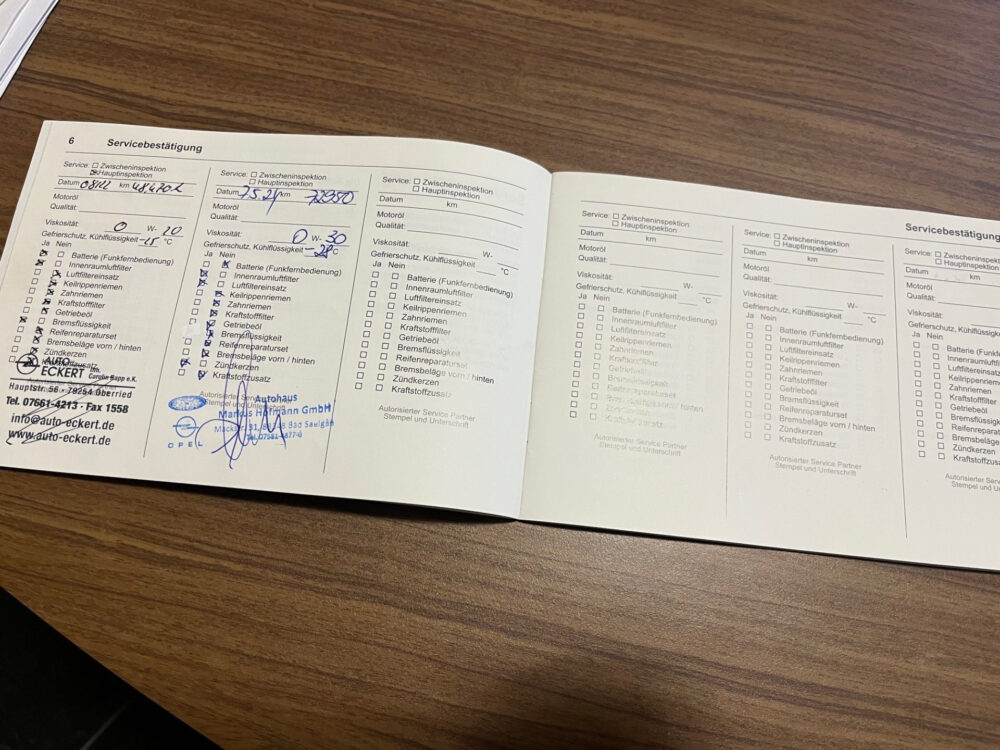 6 Servicebestätigung
Service: Zwischeninspektion
Hauptinspektion
Datum km
Motoröl
Qualität:
Viskosität: 0 W- 20
Gefrierschutz, Kühlflüssigkeit °C
Ja Nein
Batterie (Funkfernbedienung)
Innenraumluftfilter
Luftfiltereinsatz
Keilrippenriemen
Zahnriemen
Kraftstofffilter
Getriebeöl
Bremsflüssigkeit
Reifenreparaturset
Bremsbeläge vorn / hinten
Zündkerzen
AUTO
ECKERT
Inh.
Carolin Rapp e.K.
Hauptstr. 56 · 79254 Oberried
Tel. 07661-4213 · Fax 1558
info@auto-eckert.de
www.auto-eckert.de
Service: Zwischeninspektion
Hauptinspektion
Datum km
Motoröl
Qualität:
Viskosität: 0 W- 30
Gefrierschutz, Kühlflüssigkeit °C
Ja Nein
Batterie (Funkfernbedienung)
Innenraumluftfilter
Luftfiltereinsatz
Keilrippenriemen
Zahnriemen
Kraftstofffilter
Getriebeöl
Bremsflüssigkeit
Reifenreparaturset
Bremsbeläge vorn / hinten
Zündkerzen
Kraftstoffzusatz
Autohaus
Markus Hofmann GmbH
Bad Saulgau
OPEL
Service: Zwischeninspektion
Hauptinspektion
Datum km
Motoröl
Qualität:
Viskosität: W-
Gefrierschutz, Kühlflüssigkeit °C
Ja Nein
Batterie (Funkfernbedienung)
Innenraumluftfilter
Luftfiltereinsatz
Keilrippenriemen
Zahnriemen
Kraftstofffilter
Getriebeöl
Bremsflüssigkeit
Reifenreparaturset
Bremsbeläge vorn / hinten
Zündkerzen
Kraftstoffzusatz
Autorisierter Service Partner
Stempel und Unterschrift
Servicebestätigung
Service: Zwischeninspektion
Hauptinspektion
Datum km
Motoröl
Qualität:
Viskosität: W-
Gefrierschutz, Kühlflüssigkeit °C
Ja Nein
Batterie (Funkfernbedienung)
Innenraumluftfilter
Luftfiltereinsatz
Keilrippenriemen
Zahnriemen
Kraftstofffilter
Getriebeöl
Bremsflüssigkeit
Reifenreparaturset
Bremsbeläge vorn / hinten
Zündkerzen
Kraftstoffzusatz
Autorisierter Service Partner
Stempel und Unterschrift
Service: Zwischeninspektion
Hauptinspektion
Datum km
Motoröl
Qualität:
Viskosität: W-
Gefrierschutz, Kühlflüssigkeit °C
Ja Nein
Batterie (Funkfernbedienung)
Innenraumluftfilter
Luftfiltereinsatz
Keilrippenriemen
Zahnriemen
Kraftstofffilter
Getriebeöl
Bremsflüssigkeit
Reifenreparaturset
Bremsbeläge vorn / hinten
Zündkerzen
Kraftstoffzusatz
Autorisierter Service Partner
Stempel und Unterschrift
Service:
Datum km
Motoröl
Qualität:
Viskosität:
Gefrierschutz,
Ja Nein
Innenraumluftfilter
Luftfiltereinsatz
Keilrippenriemen
Zahnriemen
Kraftstofffilter
Getriebeöl
Bremsflüssigkeit
Bremsbeläge
Zündkerzen
Autorisierter
Stempel und